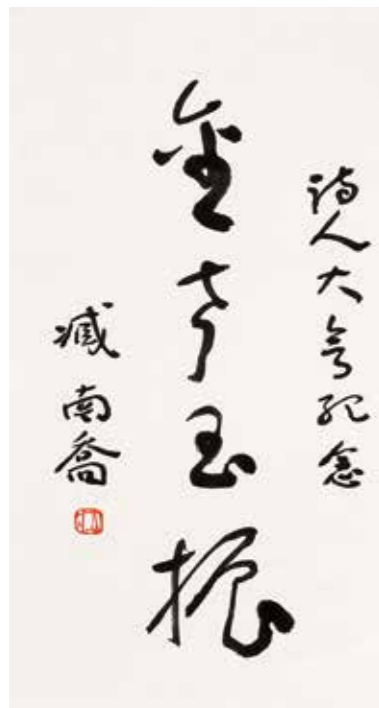 詩人大會紀念
金声玉振
臧南喬